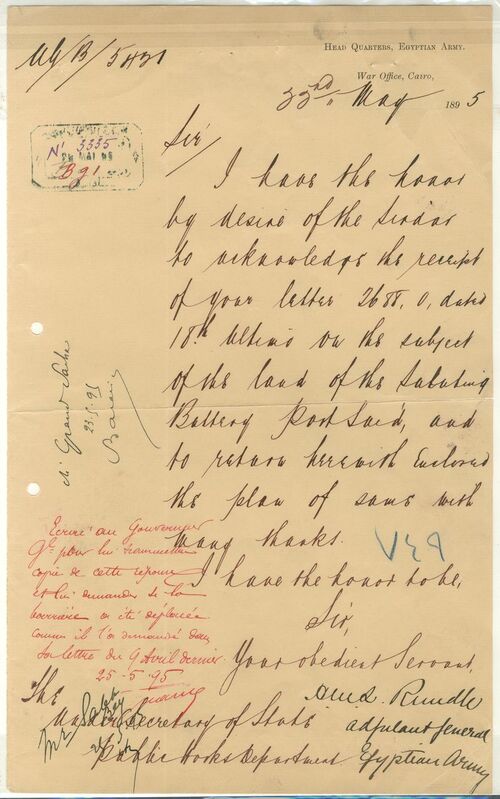 HEAD QUARTERS, EGYPTIAN ARMY.
War Office, Cairo,
May 1895
Nº 3335
MAI 95
Sir
I have the honor
by desire of the Sirdar
to acknowledge the receipt
of your letter 2688, O, dated
18th Ultimo on the subject
of the land of the Saluting
Battery Port Said, and
to return herewith Enclosed
the plan of same with
many thanks.
I have the honor to be,
Sir,
Your obedient Servant,
Rundle
adjutant General
Egyptian Army
The
Under Secretary of State
Public Works Department
23.5.95
Ecrire au Gouverneur
Gal pour lui transmettre
copie de cette réponse
et lui demander si la
barrière a été déplacée
comme il l'a demandé dans
sa lettre du 9 Avril dernier.
25-5-95